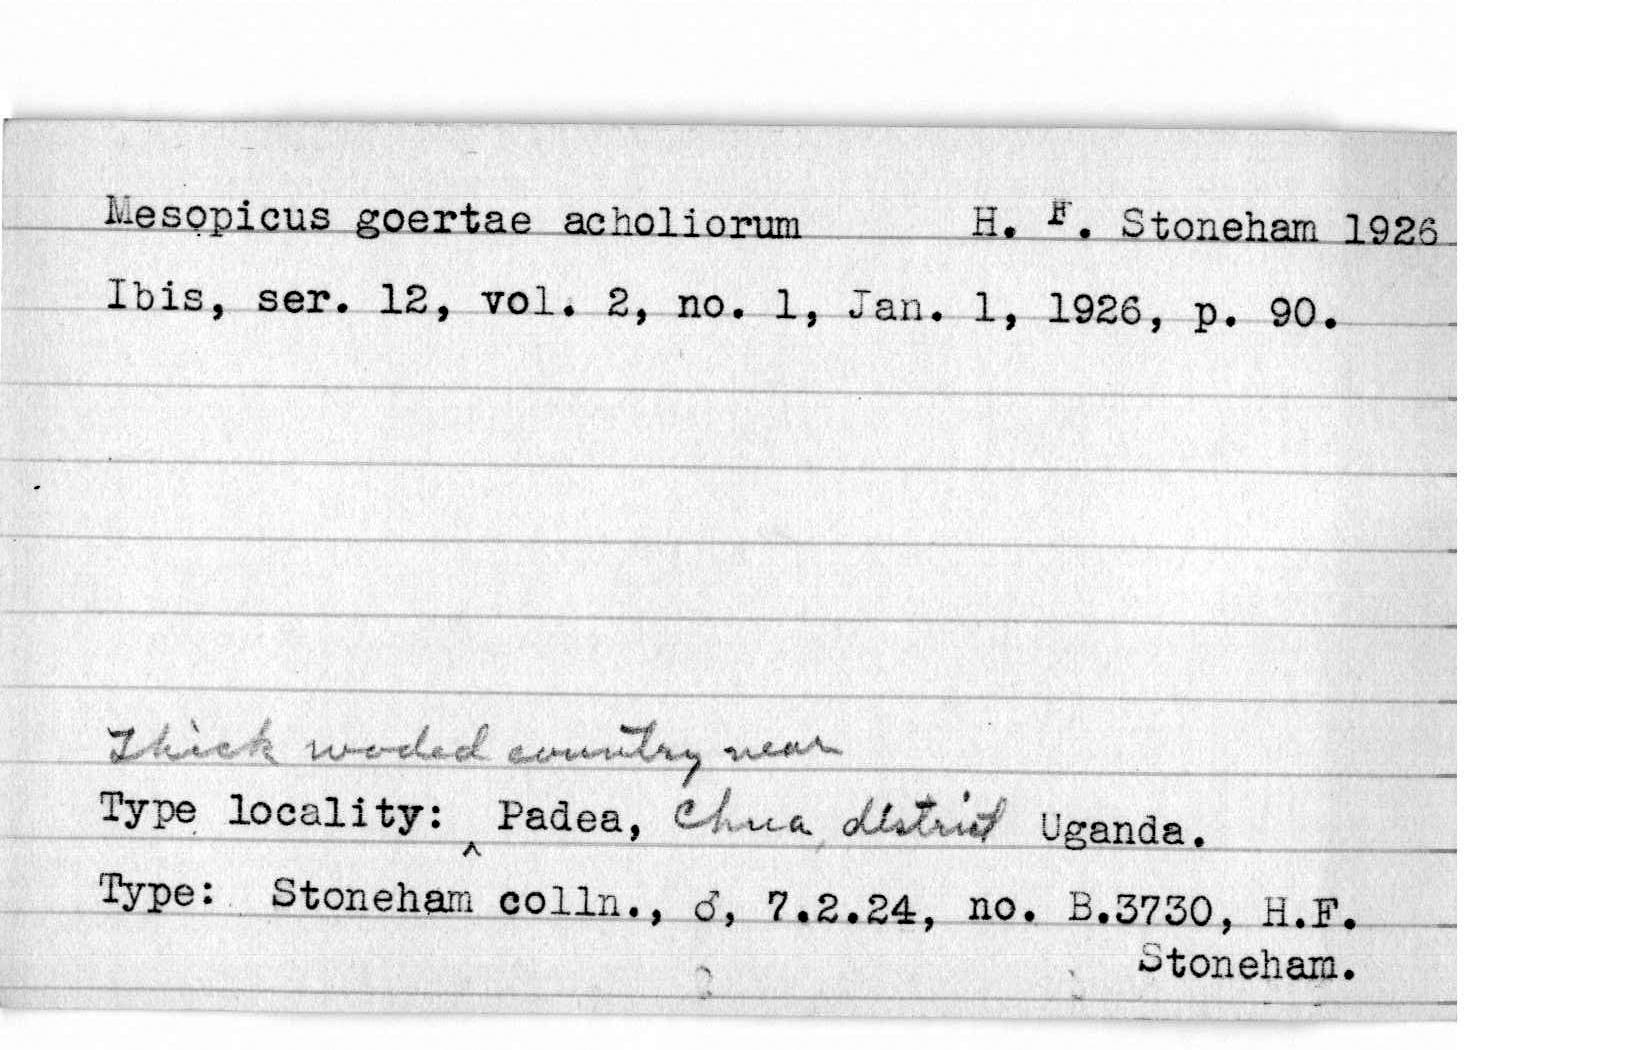 Mesopicus goertae acholiorum H. F. Stoneham 1926
Ibis, ser. 12, vol. 2, no. 1, Jan. 1, 1926, p. 90.
Thick wooded country near
Type locality: ^ Padea, Chua, district Uganda.
Type: Stoneham colln., ♂, 7.2.24, no. B.3730, H.F.
Stoneham.